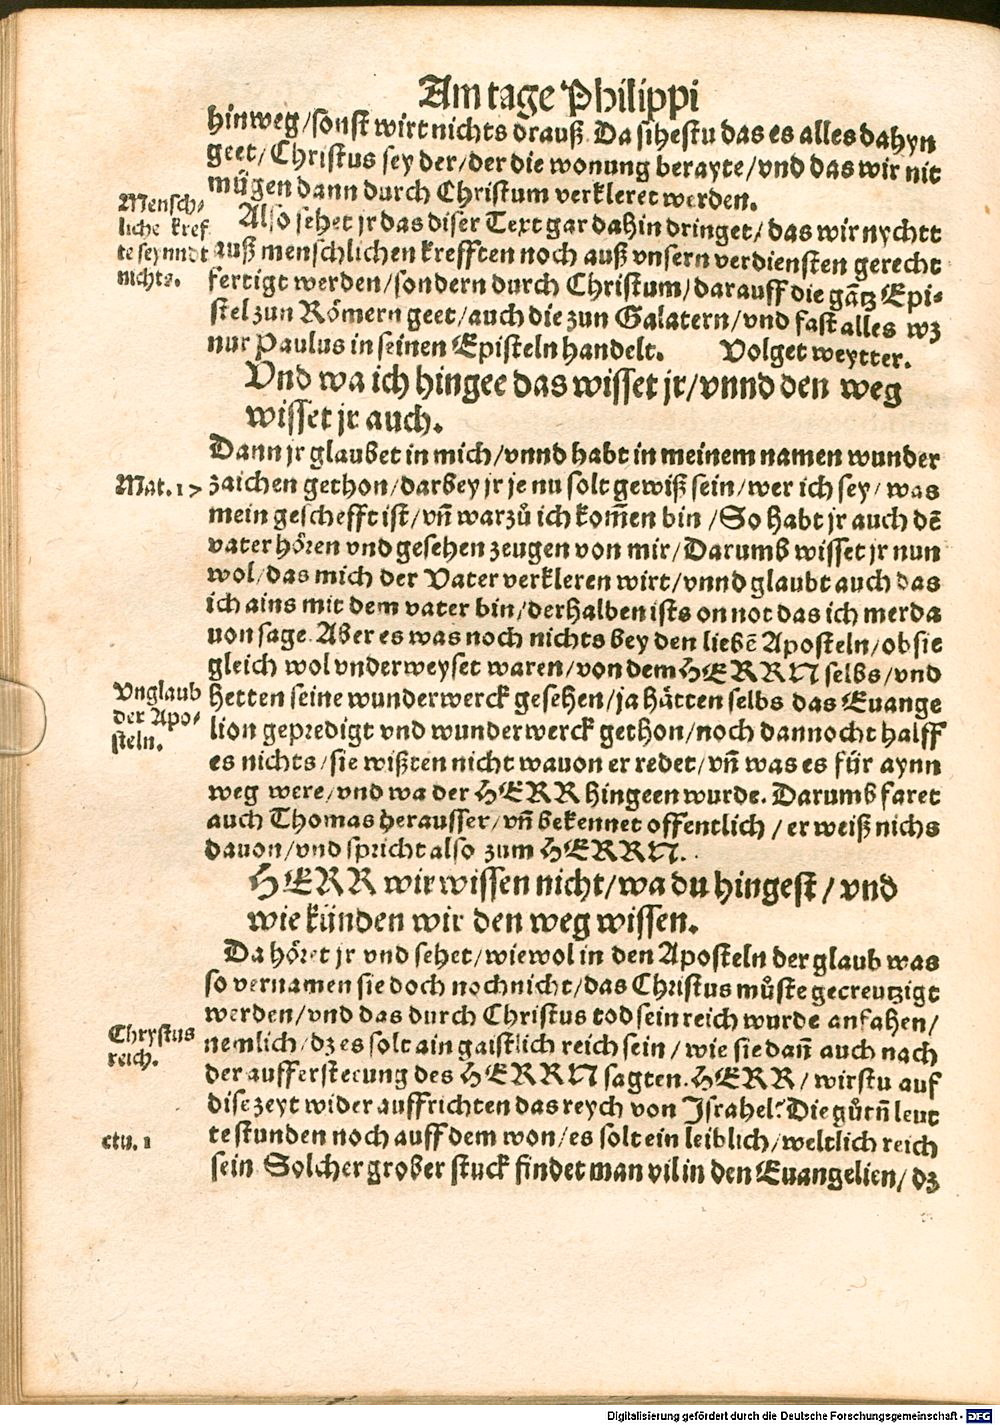 Am tage Philippi
hinweg/sonst wirt nichts drauß. Da sihestu das es alles dahyn
geet/Christus sey der/der die wonung berayte/vnd das wir nit
mügen dann durch Christum verkleret werden.
Mensch⸗
liche kref
te seynndt
nichts.
Also sehet jr das diser Text gar dahin dringet/das wir nychtt
auß menschlichen krefften noch auß vnsern verdiensten gerecht
fertigt werden/sondern durch Christum/darauff die gãtz Epi⸗
stel zun Römern geet/auch die zun Galatern/vnd fast alles wz
nur Paulus in seinen Episteln handelt. Volget weytter.
Vnd wa ich hingee das wisset jr/vnnd den weg
wisset jr auch.
Dann jr glaubet in mich/vnnd habt in meinem namen wunder
Mat. 17
zaichen gethon/darbey jr je nu solt gewiß sein/wer ich sey/was
mein geschefft ist/vñ warzů ich kom̃en bin/So habt jr auch dẽ
vater hören vnd gesehen zeugen von mir/Darumb wisset jr nun
wol/das mich der Vater verkleren wirt/vnnd glaubt auch das
ich ains mit dem vater bin/derhalben ists on not das ich mer da
uon sage. Aber es was noch nichts bey den liebẽ Aposteln/ob sie
gleich wol vnderweyset waren/von dem HERRN selbs/vnd
Vnglaub
der Apo⸗
steln.
hetten seine wunderwerck gesehen/ja hätten selbs das Euange
lion gepredigt vnd wunderwerck gethon/noch dannocht halff
es nichts/sie wißten nicht wauon er redet/vñ was es für aynn
weg were/vnd wa der HERR hingeen wurde. Darumb faret
auch Thomas herausser/vñ bekennet offentlich/er weiß nichs
dauon/vnd spricht also zum HERRN.
HERR wir wissen nicht/wa du hingest/vnd
wie künden wir den weg wissen.
Da höret jr vnd sehet/wiewol in den Aposteln der glaub was
so vernamen sie doch noch nicht/das Christus můste gecreutzigt
werden/vnd das durch Christus tod sein reich wurde anfahen/
Chrystus
reich.
nemlich/dz es solt ain gaistlich reich sein/wie sie dañ auch nach
der auffersteeung des HERRN sagten. HERR/wirstu auf
dise zeyt wider auffrichten das reych von Israhel? Die gůtñ leut
ctu. 1
te stunden noch auff dem won/es solt ein leiblich/weltlich reich
sein Solcher grober stuck findet man vil in den Euangelien/dz
Digitalisierung gefördert durch die Deutsche Forschungsgemeinschaft - DFG